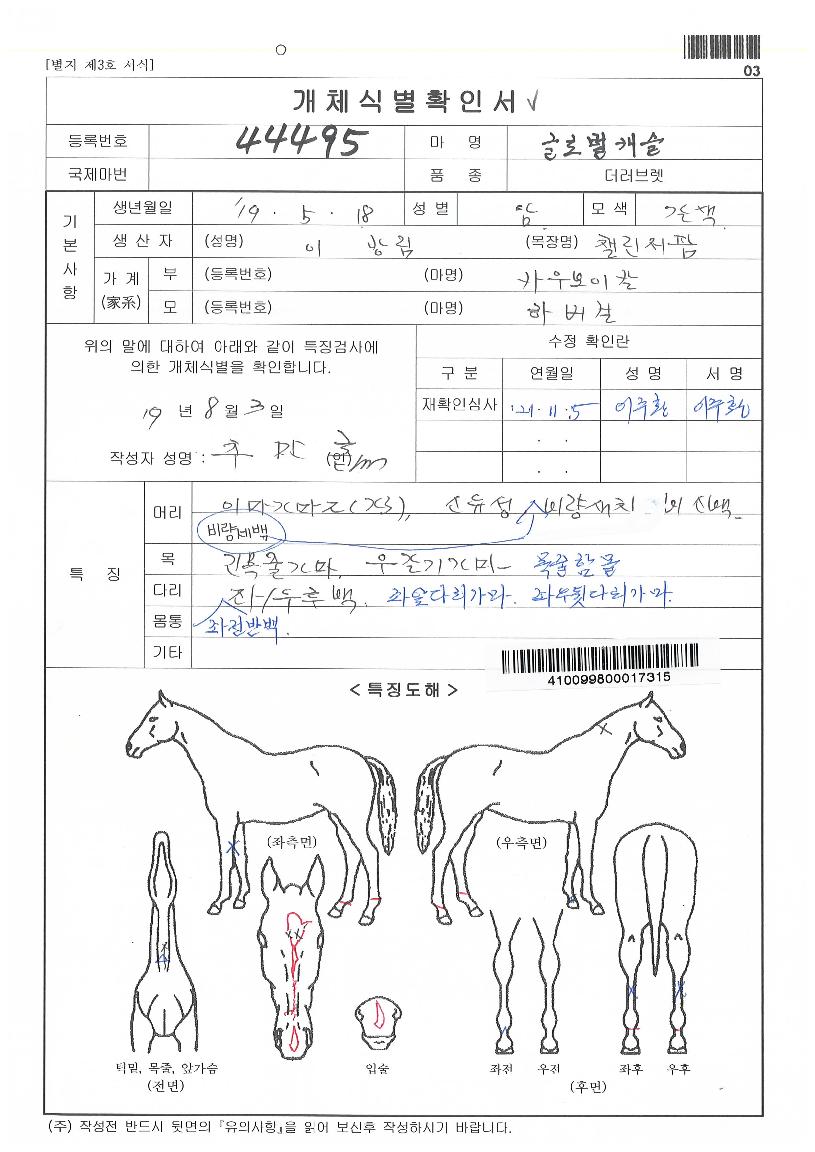 03
[별지 제3호 서식]
개체식별확인서 √
등록번호 44495 마 명 글로벌캐슬
국제마번 품 종 더러브렛
기본사항
생년월일 '19 . 5 . 18 성 별 암 모 색 갈색
생 산 자 (성명) 이 광림 (목장명) 챌린저팜
가 계 (家系)
부 (등록번호) (마명) 카우보이칼
모 (등록번호) (마명) 하버걸
위의 말에 대하여 아래와 같이 특징검사에
의한 개체식별을 확인합니다.
19 년 8 월 3 일
작성자 성명 : (인)
수정 확인란
구 분 연월일 성 명 서 명
재확인심사 '21. 11. 5 이주환 이주환
. .
. .
특 징
머리
비량세백
목 목줄함몰
다리 좌앞다리가마. 좌우뒷다리가마.
몸통 좌전반백.
기타
410099800017315
< 특징도해 >
(좌측면) (우측면)
턱밑, 목줄, 앞가슴 입술 좌전 우전 좌후 우후
(전면) (후면)
(주) 작성전 반드시 뒷면의 『유의사항』을 읽어 보신후 작성하시기 바랍니다.